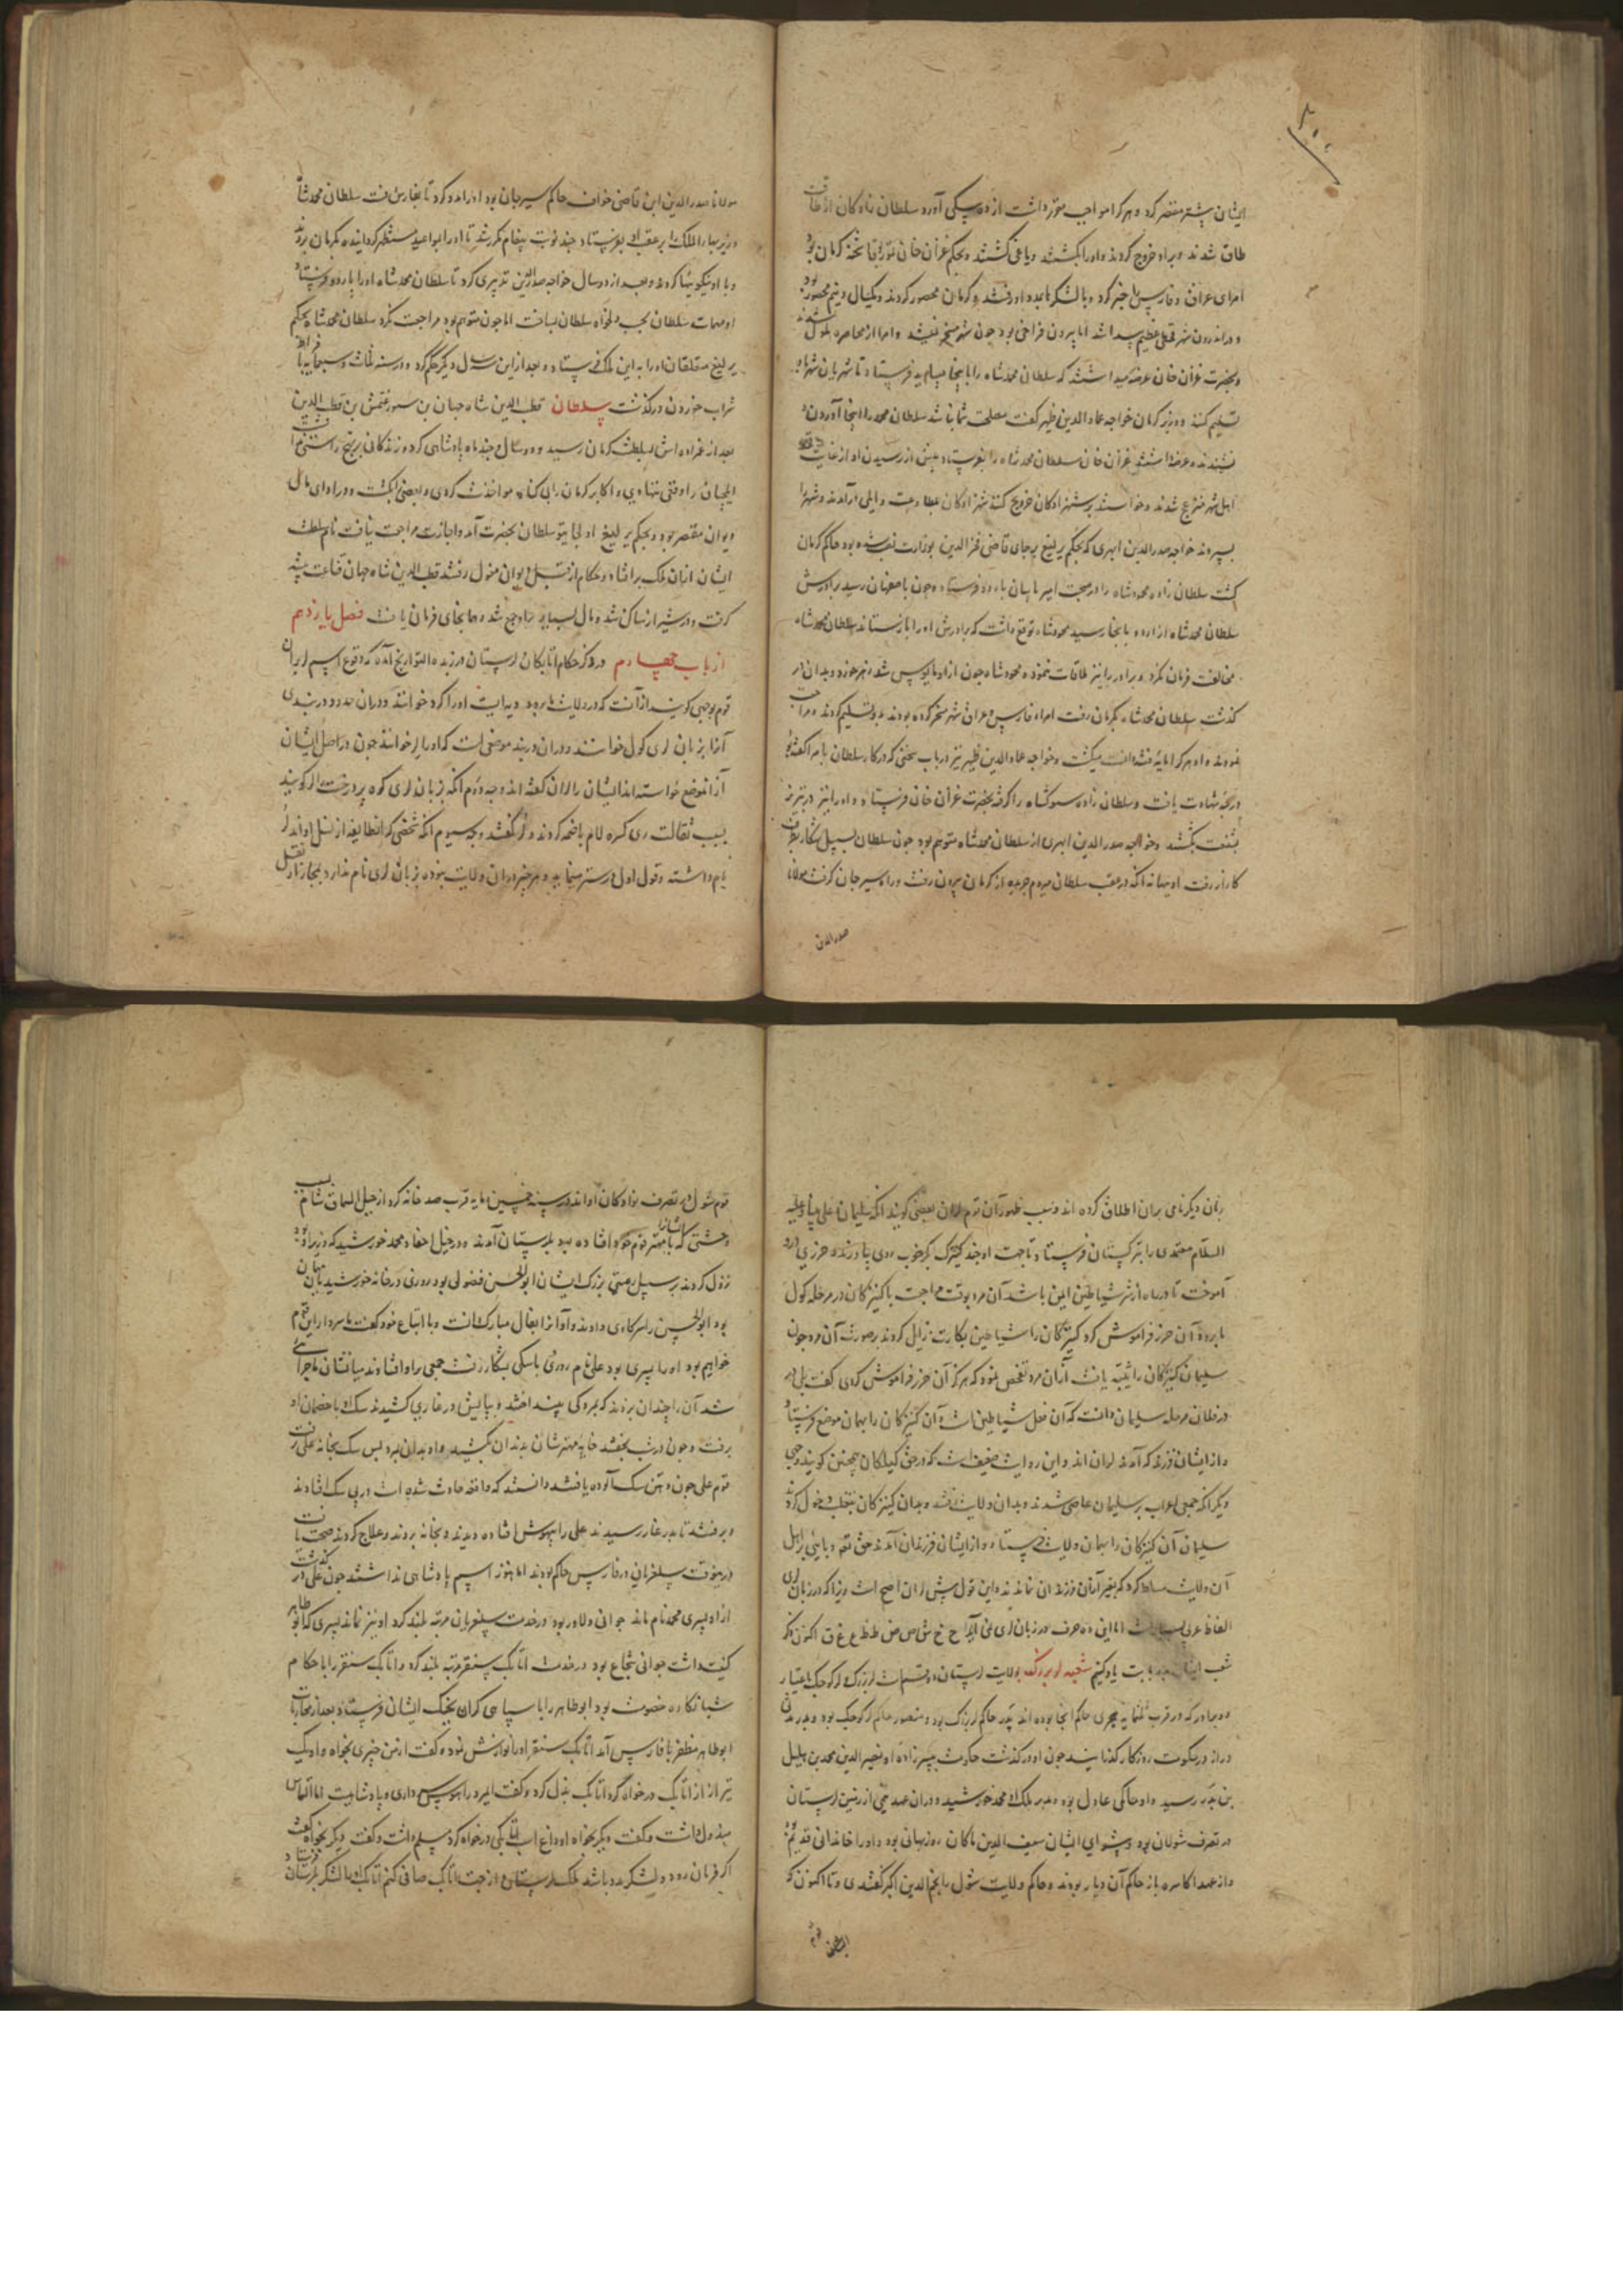 ایشان پشتر مقصر کرد و هر کرا مواجب مقرر داشت از ده بیکی آورد سلطان زادکان از طاقت
طاق شدند و برو خروج کردند و اورا بکشتند و یاغی کشتند و بحکم غزان خان شحنه کرمان بود
امرای عراق و فارس را خبر کرد و با لشکر بمدد او رفتند و کرمان محصور کردند و یکسال و نیم محصور بود
و در اندرون شهر قحطی عظیم پیدا شد اما بیرون فراخی بود چون شهر مسخر نمیشد و امرا از محاصره ملول شدند
و بحضرت غزان خان عرضه میداشتند که سلطان محمدشاه را باینجا میباید فرستاد تا شهریان شهر باو
تسلیم کنند و وزیر کرمان خواجه عماد الدین ظهیر کفت مصلحت شما نباشد سلطان محمد را اینجا آوردن
نشنیدند و عرضه داشتند غزان خان سلطان محمدشاه را بفرستاد پیش از رسیدن او از غایت
اهل شهر منزعج شدند و خواستند بر شهزادکان خروج کنند شهزادکان بمطاوعت و ایلی در آمدند و شهر را
بسپردند خواجه صدر الدین ابهری که بحکم یرلیغ بجای قاضی فخر الدین بوزارت نصب شده بود حاکم کرمان
کشت سلطان زاده محمودشاه را در صحبت امیر باردو فرستاد و چون باصفهان رسید برادرش
سلطان محمدشاه از اردو بانجا رسید محمودشاه توقع داشت که برادرش اورا باز ستاند سلطان محمدشاه
مخالفت فرمان نکرد و برادر را نیز ملاقات ننمود محمودشاه چون از او مایوس شد زهر خورد و بدان در
کذشت سلطان محمدشاه بکرمان رفت امراء فارس و عراق شهر مسخر کرده بودند بدو تسلیم کردند و مراجعت
نمودند و او هر کرا مایه فتنه دانست میکشت و خواجه عماد الدین ظهیر نیز در باب سخنی که در کار سلطان با امرا کفته بود
درجه شهادت یافت و سلطان زاده سیوکشاه را کرفته بحضرت غزان خان فرستاد و او را نیز در تبریز
بکشتند و خواجه صدر الدین ابهری از سلطان محمدشاه متوهم بود چون سلطان بسبیل شکار بطرف
کارزار رفت او بهانه آنکه در عقب سلطان میروم جریده از کرمان بیرون رفت و راه سیرجان کرفت مولانا
صدر الدین
مولانا صدر الدین ابن قاضی خواف حاکم سیرجان بود اورا مدد کرد تا بفارس رفت سلطان محمدشاه
وزیر بهاء الملک را بر عقب او بفرستاد و چند نوبت پیغام مکرر شد تا اورا بمواعید مستظهر کردانیده بکرمان بردند
و با او نیکوییها کردند و بعد از دو سال خواجه صدر الدین تدبیری کرد تا سلطان محمدشاه اورا باردو فرستاد
او مهمات سلطان بحسب دلخواه سلطان بساخت اما چون متوهم بود مراجعت نکرد سلطان محمدشاه بحکم
یرلیغ اورا به این ملک فرستاد و بعد از این سه سال دیکر حکم کرد و در سنه ثلث و سبعمایه با افراط
شراب خوردن درکذشت سلطان قطب الدین شاه جهان بن سیورغتمش بن قطب الدین
بعد از عمزاده اش بسلطنت کرمان رسید و دو سال و چند ماه پادشاهی کرد و زندکانی بر نهج راستی
ایلچیان را وقتی ننهادی و اکابر کرمان را بی کناه مواخذت کردی و بعضی را بکشت و در ادای مال
دیوان مقصر بود و بحکم یرلیغ اولجایتو سلطان بحضرت آمد و اجازت مراجعت نیافت نام سلطنت
ایشان از آن ملک برافتاد و حکام از قبل دیوان مغول رفتند قطب الدین شاه جهان قناعت پیشه
کرفت و در شیراز ساکن شد و مال بسیار برو جمع شد و هم آنجای فرمان یافت فصل یازدهم
از باب چهارم در ذکر حکام اتابکان لرستان در زبدة التواریخ آمده که وقوع اسم لر بر آن
قوم بوجهی کویند از آنست که در ولایت مانرود دیهیست اورا کرد خوانند و در آن حدود دربندی
آنرا بزبان لری کول خوانند و در آن دربند موضعی است که اورا لر خوانند چون در اصل ایشان
از آن موضع خواسته اند ایشان را لران کفته اند وجه دوم آنکه بزبان لری کوه پر درخت را لر کویند
بسبب ثقالت ری کسره لام با ضمه کردند و لر کفتند وجه سیوم آنکه شخصی که آن طایفه از نسل اواند لر
نام داشته و قول اول درستر مینماید و هر چیز در آن ولایت نبوده بزبان لری نام ندارد بمجاز از نقل
زبان دیکر نامی بر آن اطلاق کرده اند و سبب ظهور آن قوم لران بعضی کویند آنکه سلیمان علی نبینا و علیه
السلام معتمدی را بترکستان فرستاد تا جهت او چند کنیزک بکر خوب روی بیاورند و حرزی درو
آموخت تا در راه از شر شیاطین ایمن باشد آن مرد بوقت مراجعت با کنیزکان در مرحله کول
مانرود آن حرز فراموش کرد کنیزکان را شیاطین بکارت زایل کردند بر صورت آن مرد چون
سلیمان کنیزکان را ثیبه یافت از آن مرد تفحص نمود که هرکز آن حرز فراموش کردی کفت بلی در
در فلان مرحله سلیمان دانست که آن فعل شیاطین است آن کنیزکان را بهمان موضع فرستاد
و از ایشان فرزند که آمد لران اند و این روایت ضعیف است که در حق کیلکان همچنین کویند وجهی
دیکر آنکه جمعی اعراب بر سلیمان عاصی شدند و بدان ولایت رفتند و بدان کنیزکان بتغلب دخول کردند
سلیمان آن کنیزکان را بهمان ولایت فرستاد و از ایشان فرزندان آمدند حق تع وبایی بر اهل
آن ولایت مسلط کرد که بغیر از آن فرزندان نماندند و این قول پیش لران اصح است زیرا که در زبان لری
الفاظ عربی بسیار است اما این ده حرف در زبان لری نمی آید ح خ ش ص ض ط ظ ع غ ق اکنون ذکر
شعب ایشان بدو بابت یاد کنیم شعبه لر بزرک ولایت لرستان دو قسم است لر بزرک و لر کوچک باعتبار
دو برادر که در قرب ثلثمایه هجری حاکم آنجا بوده اند بدر حاکم لر بزرک بود و منصور حاکم لر کوچک بود و بدر مدتی
دراز در حکومت روزکار کذرانید چون او درکذشت حکومت به پسرزاده او نصیر الدین محمد بن هلیل
بن بدر رسید و او حاکمی عادل بود و مدبر ملک او محمد خورشید و در آن عهد نیمی از زمین لرستان
در تصرف شولان بود و پیشوای ایشان سیف الدین ماکان روزبهانی بود و اورا خاندانی قدیم
و از عهد اکاسره باز حاکم آن دیار بودند و حاکم ولایت شول را نجم الدین اکبر کفتندی و تا اکنون که
قوم شول در تصرف نوادکان اواند در سنه خمسین مایه قرب صد خانه کرد از جبل السماق شام بسبب
وحشتی که ایشانرا با مهتر قوم خود افتاده بود بلرستان آمدند و در خیل احفاد محمد خورشید که وزیر بود
نزول کردند بر سبیل رعیتی بزرک ایشان ابو الحسن فضلوی بود روزی در خانه خورشید مهمان
بود ابو الحسن را سر کاوی دادند و او آنرا بفال مبارک دانست و با اتباع خود کفت ما سردار این قوم
خواهیم بود اورا پسری بود علی نام روزی با سکی بشکار رفت جمعی برو افتادند میانشان ماجرا
شد آن را چندان بزدند که بمردکی پنداشتند و بپایش در غاری کشیدند سک او با خصمان او
برفت و چون در شب بخفتند خایه مهترشان بدندان بکشید و او بدان بمرد پس سک بخانه علی رفت
قوم علی چون دهن سک آلوده یافتند دانستند که واقعه حادث شده است در پی سک افتادند
و برفتند تا بدر غار رسیدند علی را بیهوش افتاده دیدند و بخانه بردند و علاج کردند صحت یافت
درین وقت سلغریان در فارس حاکم بودند اما هنوز اسم پادشاهی نداشتند چون علی درکذشت
از او پسری محمد نام ماند جوانی دلاور بود در خدمت سلغریان مرتبه بلند کرد او نیز نماند پسری که ابو طاهر
کنیت داشت جوانی شجاع بود در خدمت اتابک سنقر مرتبه بلند کرد و اتابک سنقر را با حکام
شبانکاره خصومت بود ابو طاهر را با سپاهی کران بجنک ایشان فرستاد بعد از محاربات
ابو طاهر مظفر با فارس آمد اتابک سنقر اورا نوازش نمود و کفت از من چیزی بخواه و او یک
تیر از اتابک درخواه کرد اتابک بذل کرد و کفت
مبذول داشت و کفت دیکر بخواه او داغ اسب اتابکی درخواه کرد مسلم داشت و کفت دیکر بخواه کفت
اکر فرمان رود و لشکر مدد باشد ملک لرستان از جهت اتابک صافی کنم اتابک با لشکر بلرستان فرستاد